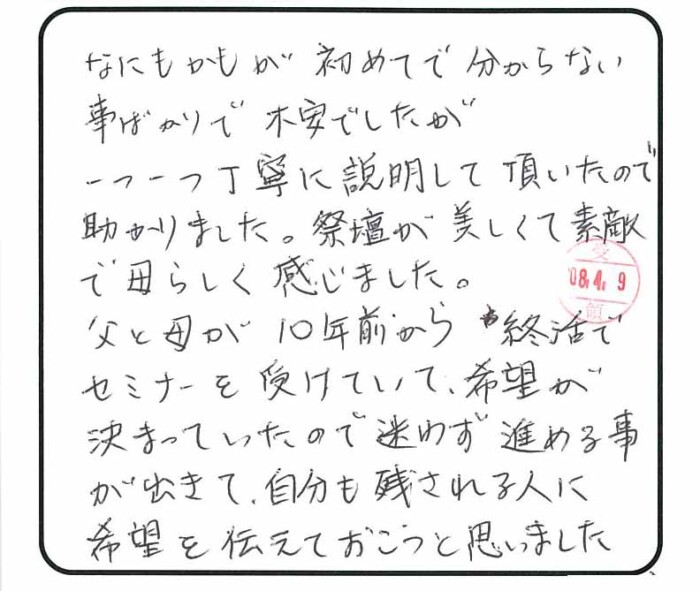 なにもかもが 初めてで 分からない
事ばかりで 不安でしたが
一つ一つ丁寧に説明して 頂いたので
助かりました。祭壇が 美しくて素敵
で母らしく 感じました。
受
'08.4.9
領
父と母が 10年前から 終活で
セミナーを 受けていて、希望が
決まっていったので 迷わず 進める事
が出きて、自分も 残される人に
希望を 伝えておこうと思いました